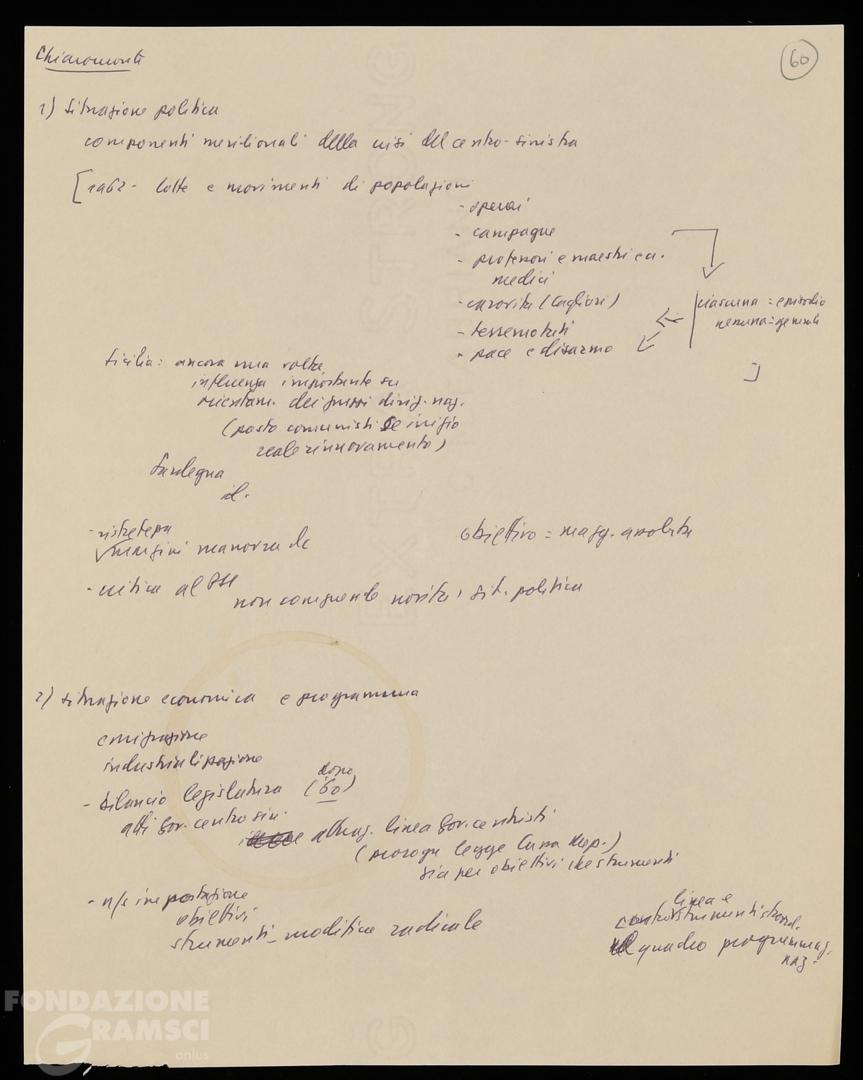 Chiaromonte
60
1) Situazione politica
componenti meridionali della crisi del centro-sinistra
[1962 - lotte e movimenti di popolazioni
- operai
- campagne
- professori e maestri e
medici
- carovita (Cagliari)
- terremotati
- pace e disarmo
ciascuna = episodio
nessuna = generale
]
Sicilia: ancora una volta
influenza importante su
orientam. dei gruppi dirig. naz.
(posto comunisti se inizio
reale rinnovamento)
Sardegna
id.
- ristretezza
margini manovra dc
obiettivo = magg. assoluta
- critica al PSI
non comprende novità, sit. politica
2) Situazione economica e programma
emigrazione
industrializzazione
- bilancio legislatura (dopo 60)
atti gov. centro sin.
attuaz. linea gov. centristi
(proroga legge Cassa Mep.)
sia per obiettivi che strumenti
- n/s impostazione
obiettivi
strumenti - modifica radicale
linea e
strumenti
quadro programmaz.
naz.
EXTRA STRONG
FONDAZIONE
GRAMSCI
onlus